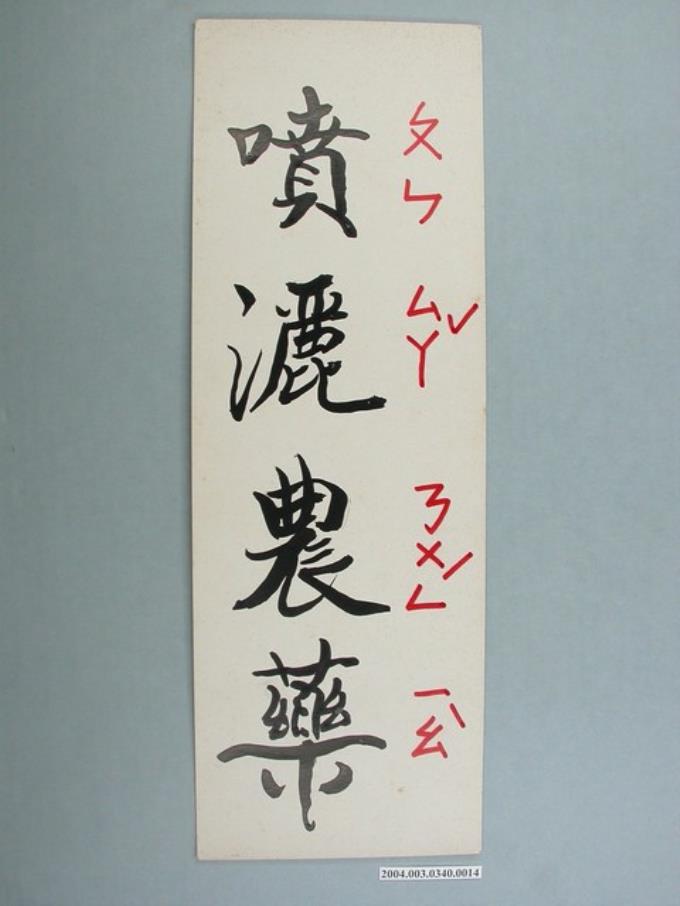 噴灑農藥
ㄆㄣ
ㄙㄚˇ
ㄋㄨㄥˊ
ㄧㄠˋ
2004.003.0340.0014